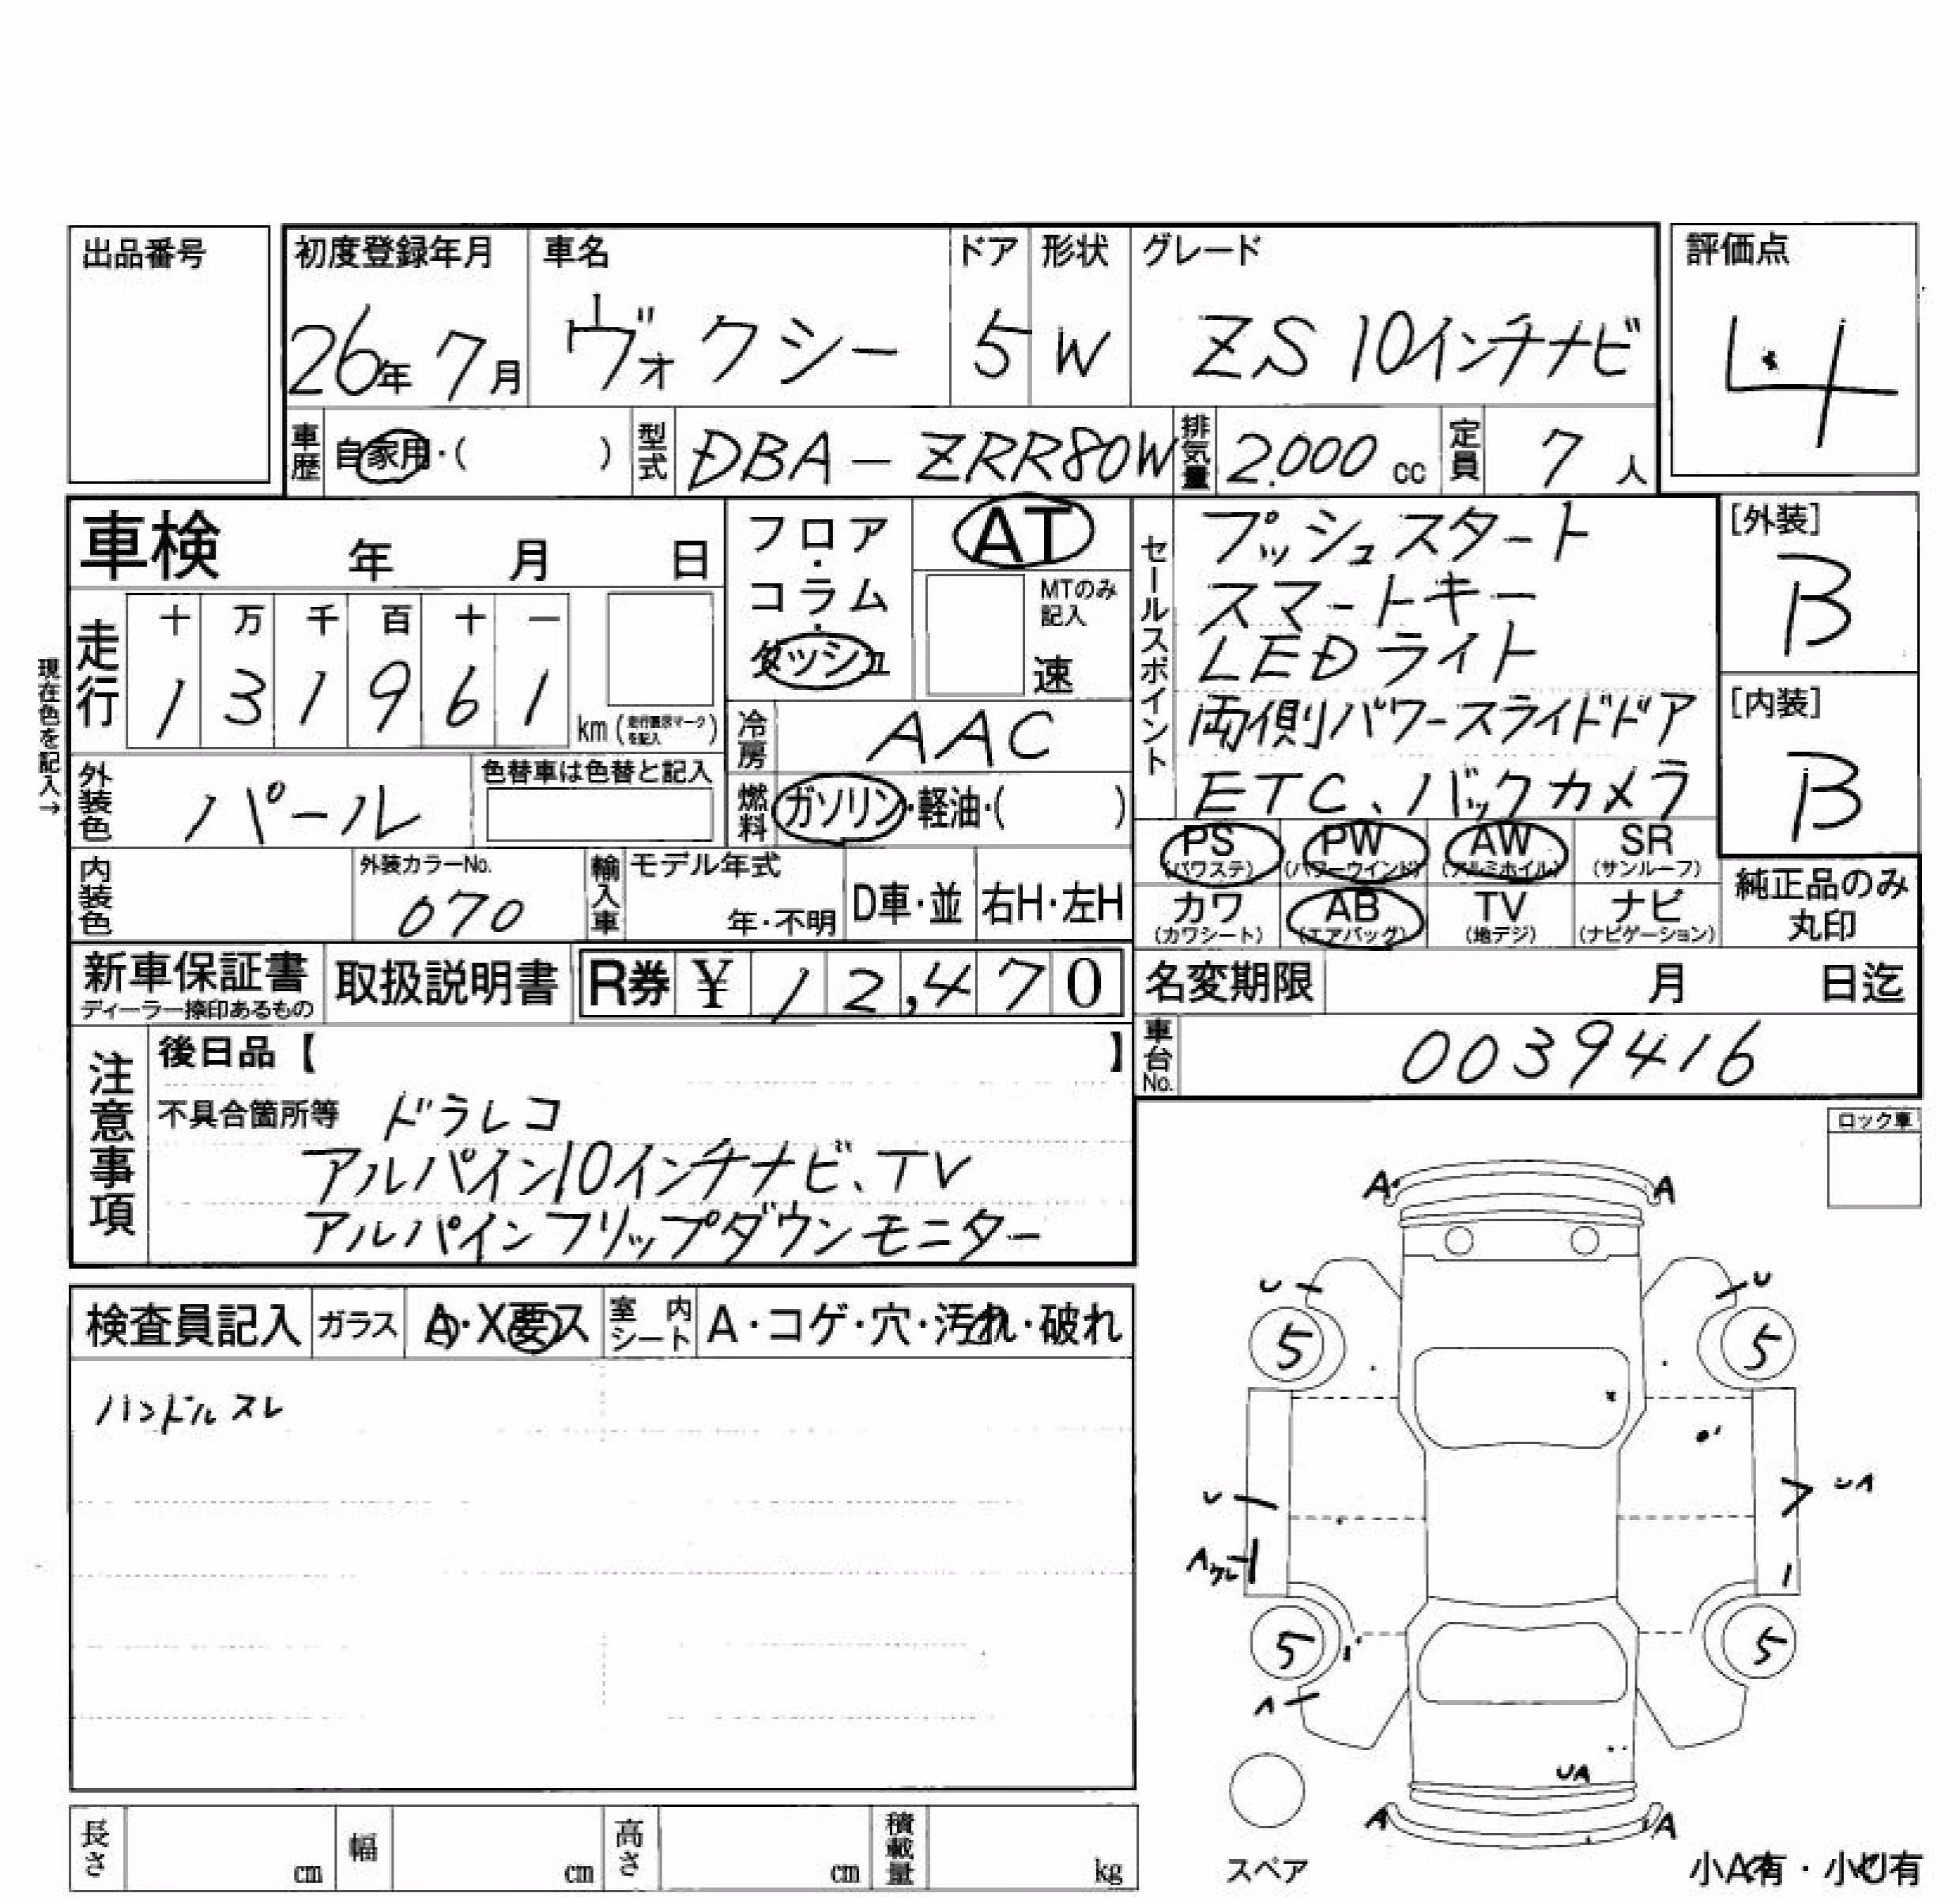 出品番号
初度登録年月 車名 ドア 形状 グレード 評価点
26年 7月 ヴォクシー 5 W ZS 10インチナビ 4
車歴 自家用・( ) 型式 DBA-ZRR80W 排気量 2.000 cc 定員 7 人
車検 年 月 日
フロア・コラム・ダッシュ
AT
MTのみ記入
速
セールスポイント
プッシュスタート
スマートキー
LEDライト
両側パワースライドドア
ETC、バックカメラ
[外装]
B
[内装]
B
現在色を記入→
走行 十 万 千 百 十 一
1 3 1 9 6 1 km (走行表示マークを記入)
冷房 AAC
外装色 パール 色替車は色替と記入
燃料 ガソリン・軽油・( )
PS (パワステ) PW (パワーウインド) AW (アルミホイル) SR (サンルーフ)
カワ (カワシート) AB (エアバッグ) TV (地デジ) ナビ (ナビゲーション)
純正品のみ丸印
内装色 外装カラーNo. 070 輸入車 モデル年式 年・不明 D車・並 右H・左H
新車保証書 ディーラー捺印あるもの 取扱説明書 R券 ¥ 12,470
名変期限 月 日迄
車台No. 0039416
注意事項
後日品【 】
不具合箇所等 ドラレコ
アルパイン10インチナビ、TV
アルパインフリップダウンモニター
ロック車
検査員記入 ガラス A・X要ス 室内シート A・コゲ・穴・汚れ・破れ
ハンドルスレ
A A
U U
5 5
U UA
A
5 5
A
UA
A A
スペア
小A有・小U有
長さ cm 幅 cm 高さ cm 積載量 kg